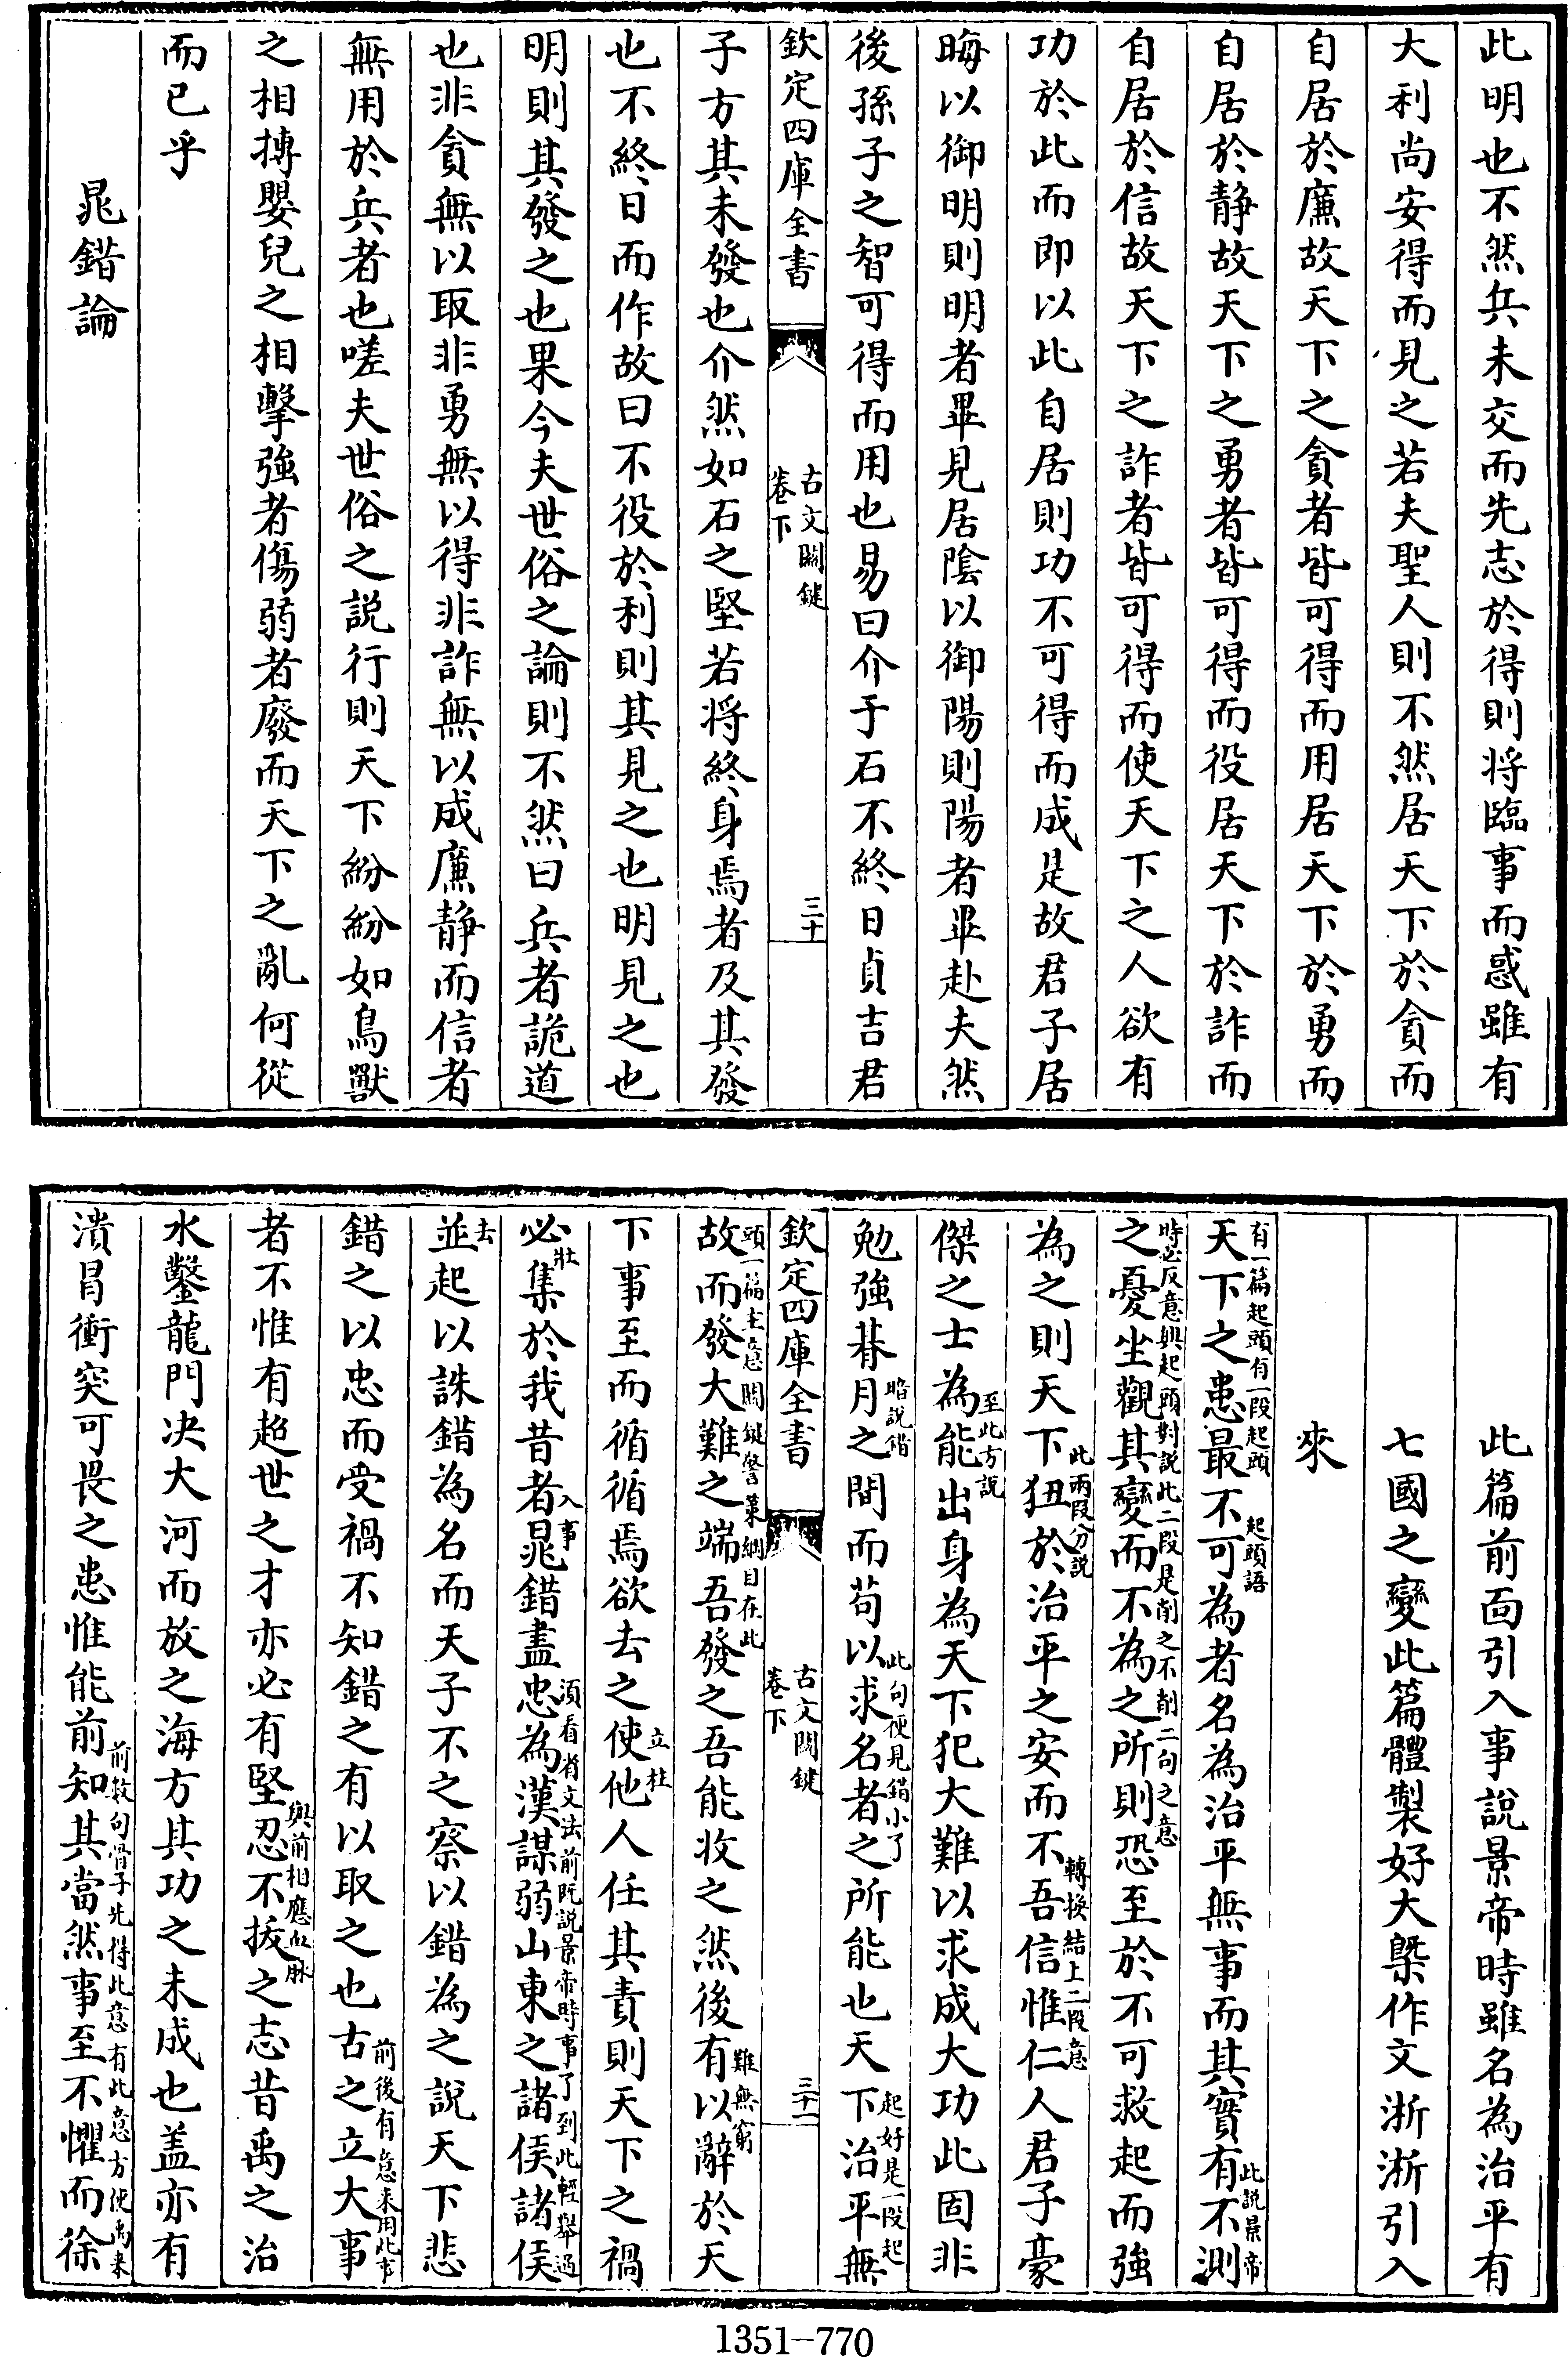 此明也不然兵未交而先志於得則将臨事而惑雖有
大利尚安得而見之若夫聖人則不然居天下於貪而
自居於廉故天下之貪者皆可得而用居天下於勇而
自居於静故天下之勇者皆可得而役居天下於詐而
自居於信故天下之詐者皆可得而使天下之人欲有
功於此而即以此自居則功不可得而成是故君子居
晦以御明則明者畢見居陰以御陽則陽者畢赴夫然
後孫子之智可得而用也易曰介于石不終日貞吉君
欽定四庫全書
古文關鍵
卷下
三十
子方其未發也介然如石之堅若将終身焉者及其發
也不終日而作故曰不役於利則其見之也明見之也
明則其發之也果今夫世俗之論則不然曰兵者詭道
也非貪無以取非勇無以得非詐無以成廉静而信者
無用於兵者也嗟夫世俗之説行則天下紛紛如鳥獸
之相搏嬰兒之相擊強者傷弱者廢而天下之亂何從
而已乎
晁錯論
此篇前面引入事說景帝時雖名為治平有
七國之變此篇體製好大槩作文漸漸引入
來
有一篇起頭有一段起頭
起頭語
此説景帝
天下之患最不可為者名為治平無事而其實有不測
時必反意與起頭對説此二段是削之不削二句之意
之憂坐觀其變而不為之所則恐至於不可救起而強
此兩段分説
轉換結上二段意
為之則天下狃於治平之安而不吾信惟仁人君子豪
至此方説
傑之士為能出身為天下犯大難以求成大功此固非
暗說錯
此句便見錯小了
起好是一段起
勉強朞月之間而苟以求名者之所能也天下治平無
欽定四庫全書
古文關鍵
卷下
三十一
頭一篇主意關鍵警䇿綱目在此
難無窮
故而發大難之端吾發之吾能收之然後有以辭於天
立柱
下事至而循循焉欲去之使他人任其責則天下之禍
壯
入事
須看省文法前既説景帝時事了到此輕舉過
必集於我昔者晁錯盡忠為漢謀弱山東之諸侯諸侯
去
並起以誅錯為名而天子不之察以錯為之說天下悲
前後有意来用此事
錯之以忠而受禍不知錯之有以取之也古之立大事
與前相應血脉
者不惟有超世之才亦必有堅忍不拔之志昔禹之治
水鑿龍門决大河而放之海方其功之未成也盖亦有
前数句骨子先得此意有此意方使禹来
潰冒衝突可畏之患惟能前知其當然事至不懼而徐
1351-770